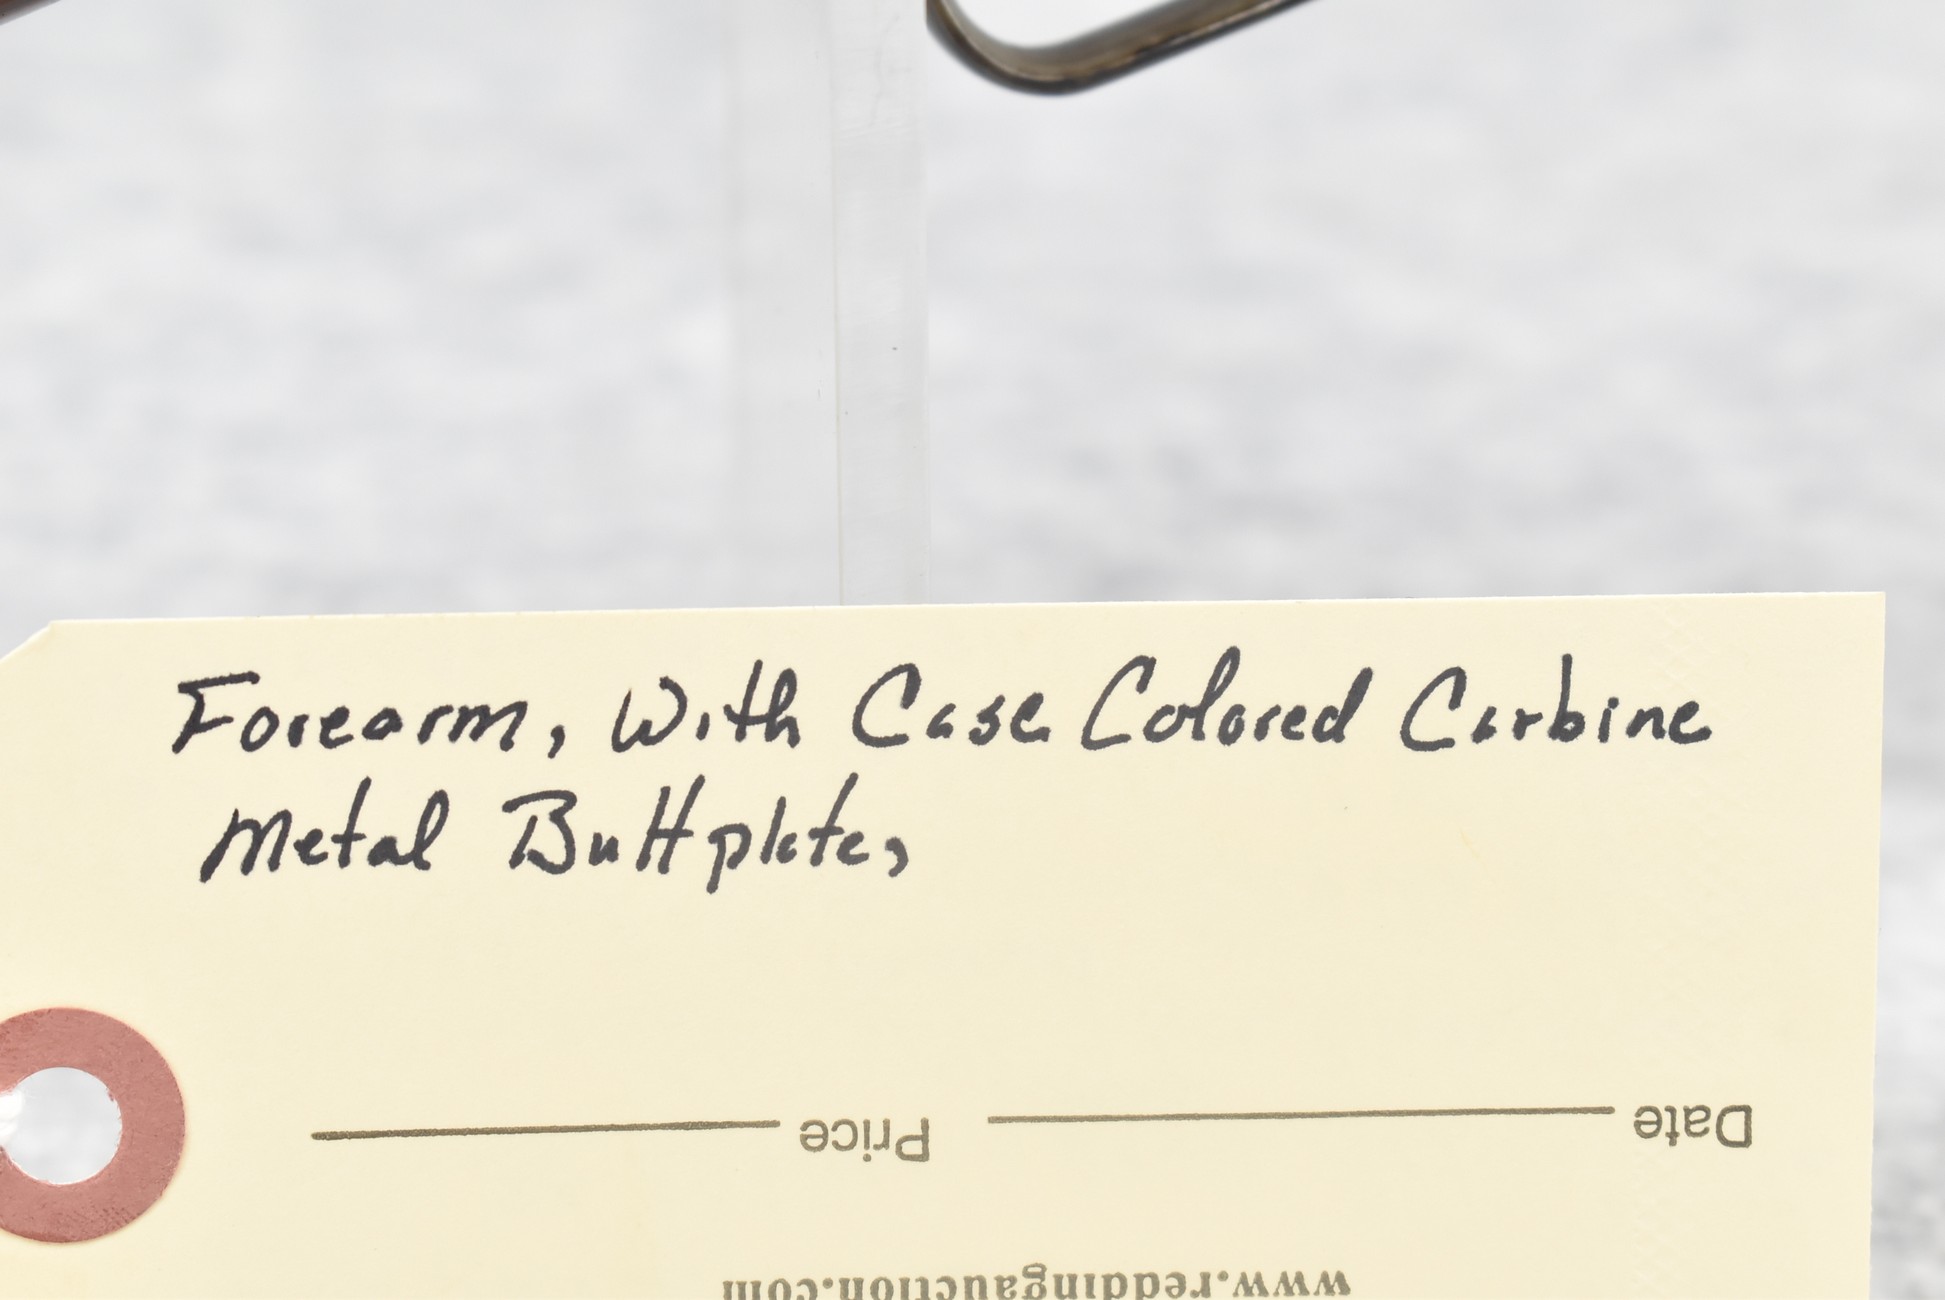 Forearm, With Case Colored Carbine
Metal Buttplate,
Date Price
www.reddingauction.com